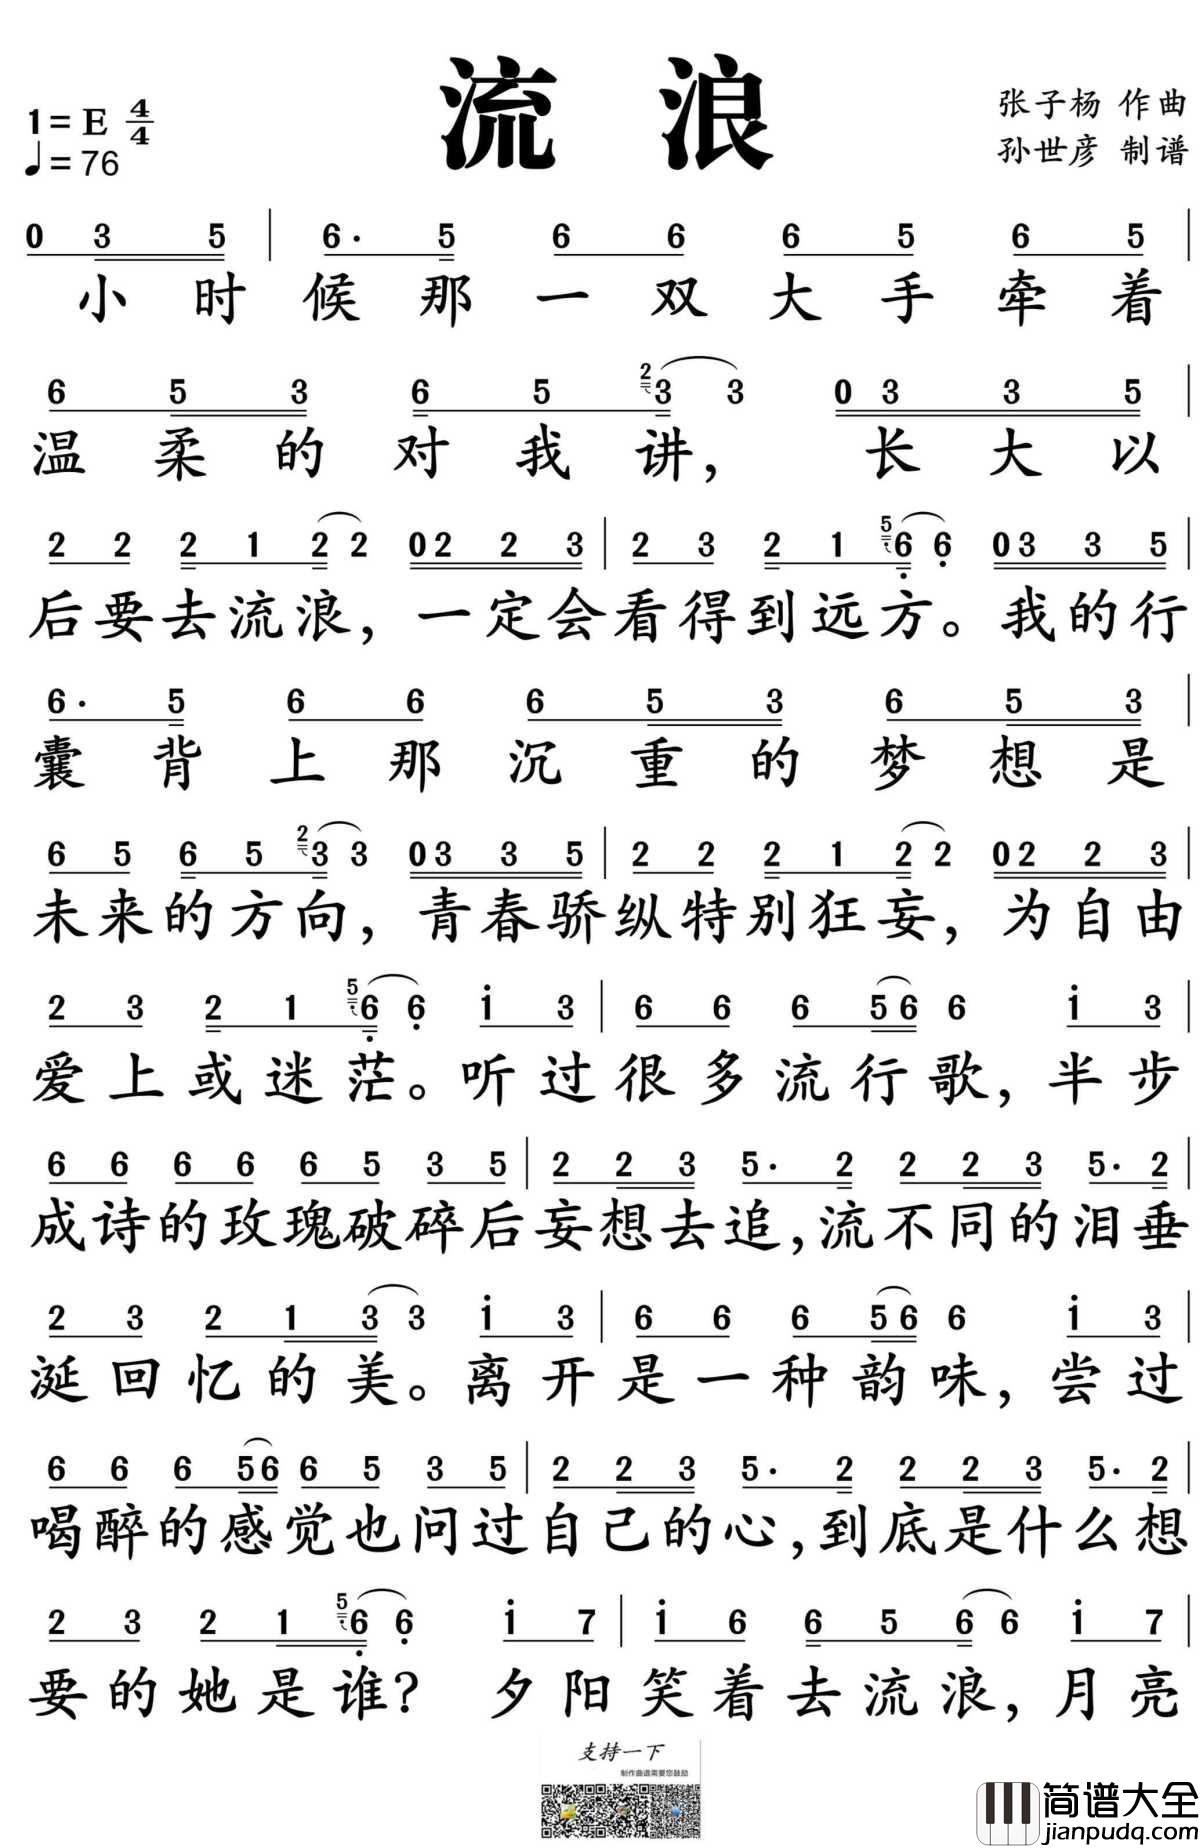 流 浪
1=E 4/4
♩=76
张子杨 作曲
孙世彦 制谱
0 3 5 | 6· 5 6 6 6 5 6 5 |
小时候那一双大手牵着
6 5 3 6 5 2 3 3 0 3 3 5 |
温柔的对我讲，长大以
2 2 2 1 2 2 0 2 2 3 | 2 3 2 1 5 6 6 0 3 3 5 |
后要去流浪，一定会看得到远方。我的行
6· 5 6 6 6 5 3 6 5 3 |
囊背上那沉重的梦想是
6 5 6 5 2 3 3 0 3 3 5 | 2 2 2 1 2 2 0 2 2 3 |
未来的方向，青春骄纵特别狂妄，为自由
2 3 2 1 5 6 6 i 3 | 6 6 6 5 6 6 i 3 |
爱上或迷茫。听过很多流行歌，半步
6 6 6 6 6 5 3 5 | 2 2 3 5· 2 2 2 3 5· 2 |
成诗的玫瑰破碎后妄想去追，流不同的泪垂
2 3 2 1 3 3 i 3 | 6 6 6 5 6 6 i 3 |
涎回忆的美。离开是一种韵味，尝过
6 6 6 5 6 6 5 3 5 | 2 2 3 5· 2 2 2 3 5· 2 |
喝醉的感觉也问过自己的心，到底是什么想
2 3 2 1 5 6 6 i 7 | i 6 6 5 6 6 i 7 |
要的她是谁？夕阳笑着去流浪，月亮
支持一下
制作曲谱需要您鼓励
简谱大全
jianpudq.com